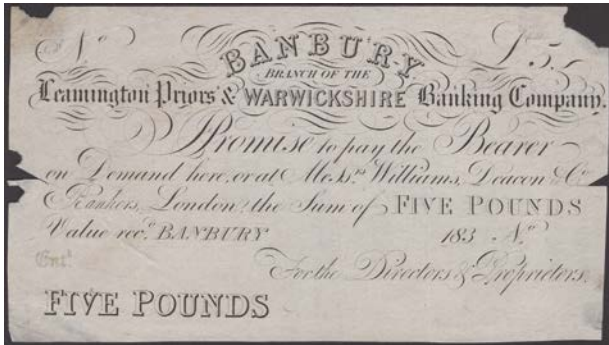 No BANBURY £5
BRANCH OF THE
Leamington Priors & WARWICKSHIRE Banking Company,
Promise to pay the Bearer
on Demand here, or at Mess.rs Williams, Deacon & Co.
Bankers, London, the Sum of FIVE POUNDS
Value rec.d BANBURY 183 No
Ent.d
For the Directors & Proprietors,
FIVE POUNDS